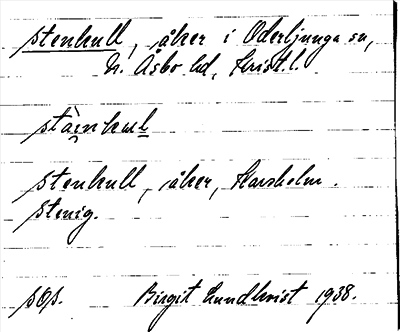 stenkull, åker i Oderljunga sn,
N. Åsbo hd, Krist. l.
stàinkul
stenkull, åker, Karsholm.
Stenig.
sOp. Birgit Lundkvist 1938.